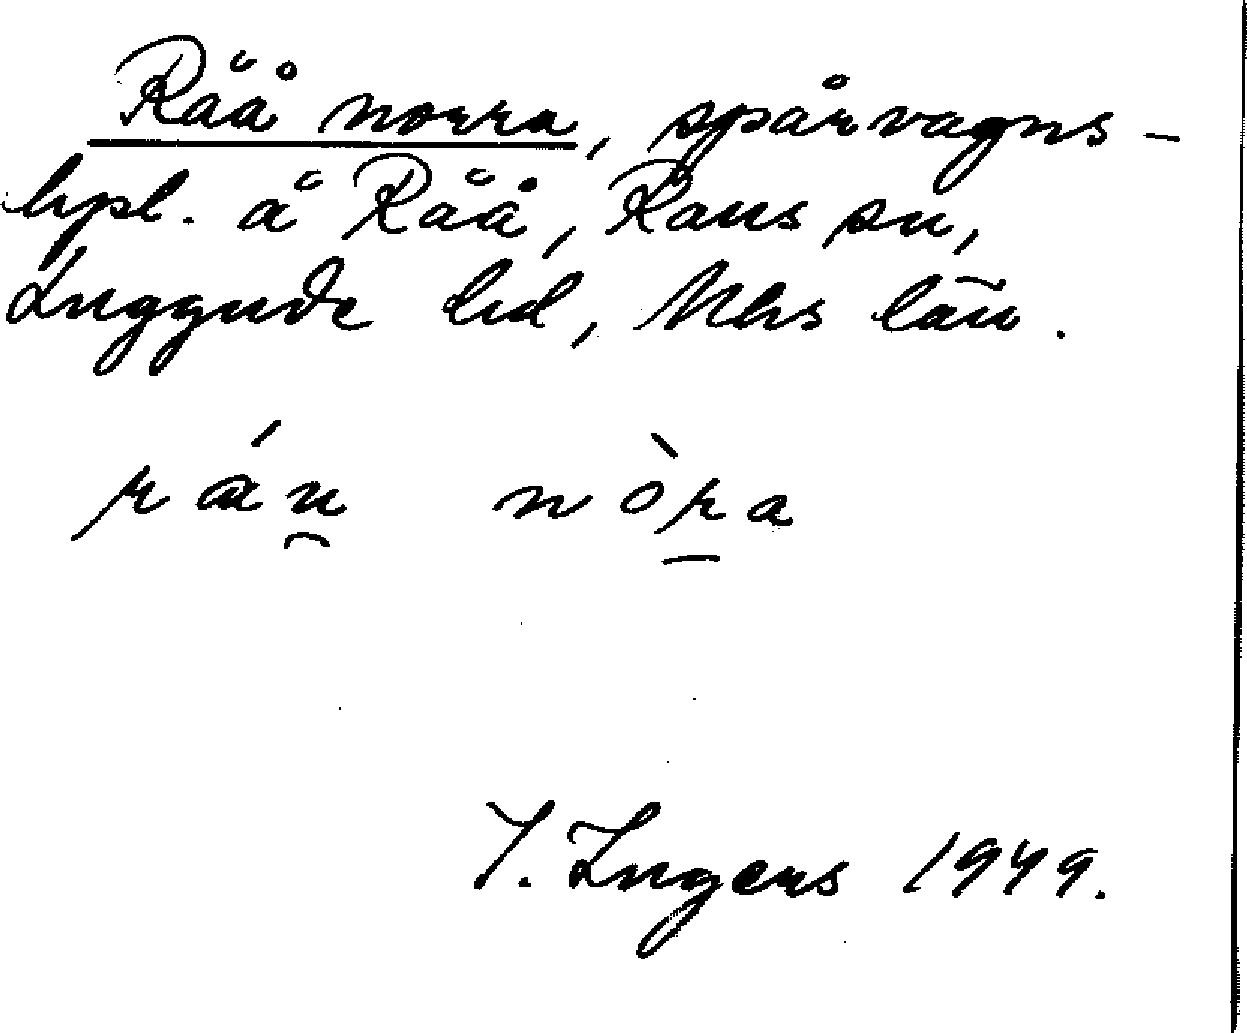 Råå norra, spårvagns-
hpl. å Råå, Raus sn,
Luggude hd, Mhs län.
I. Ingers 1949.